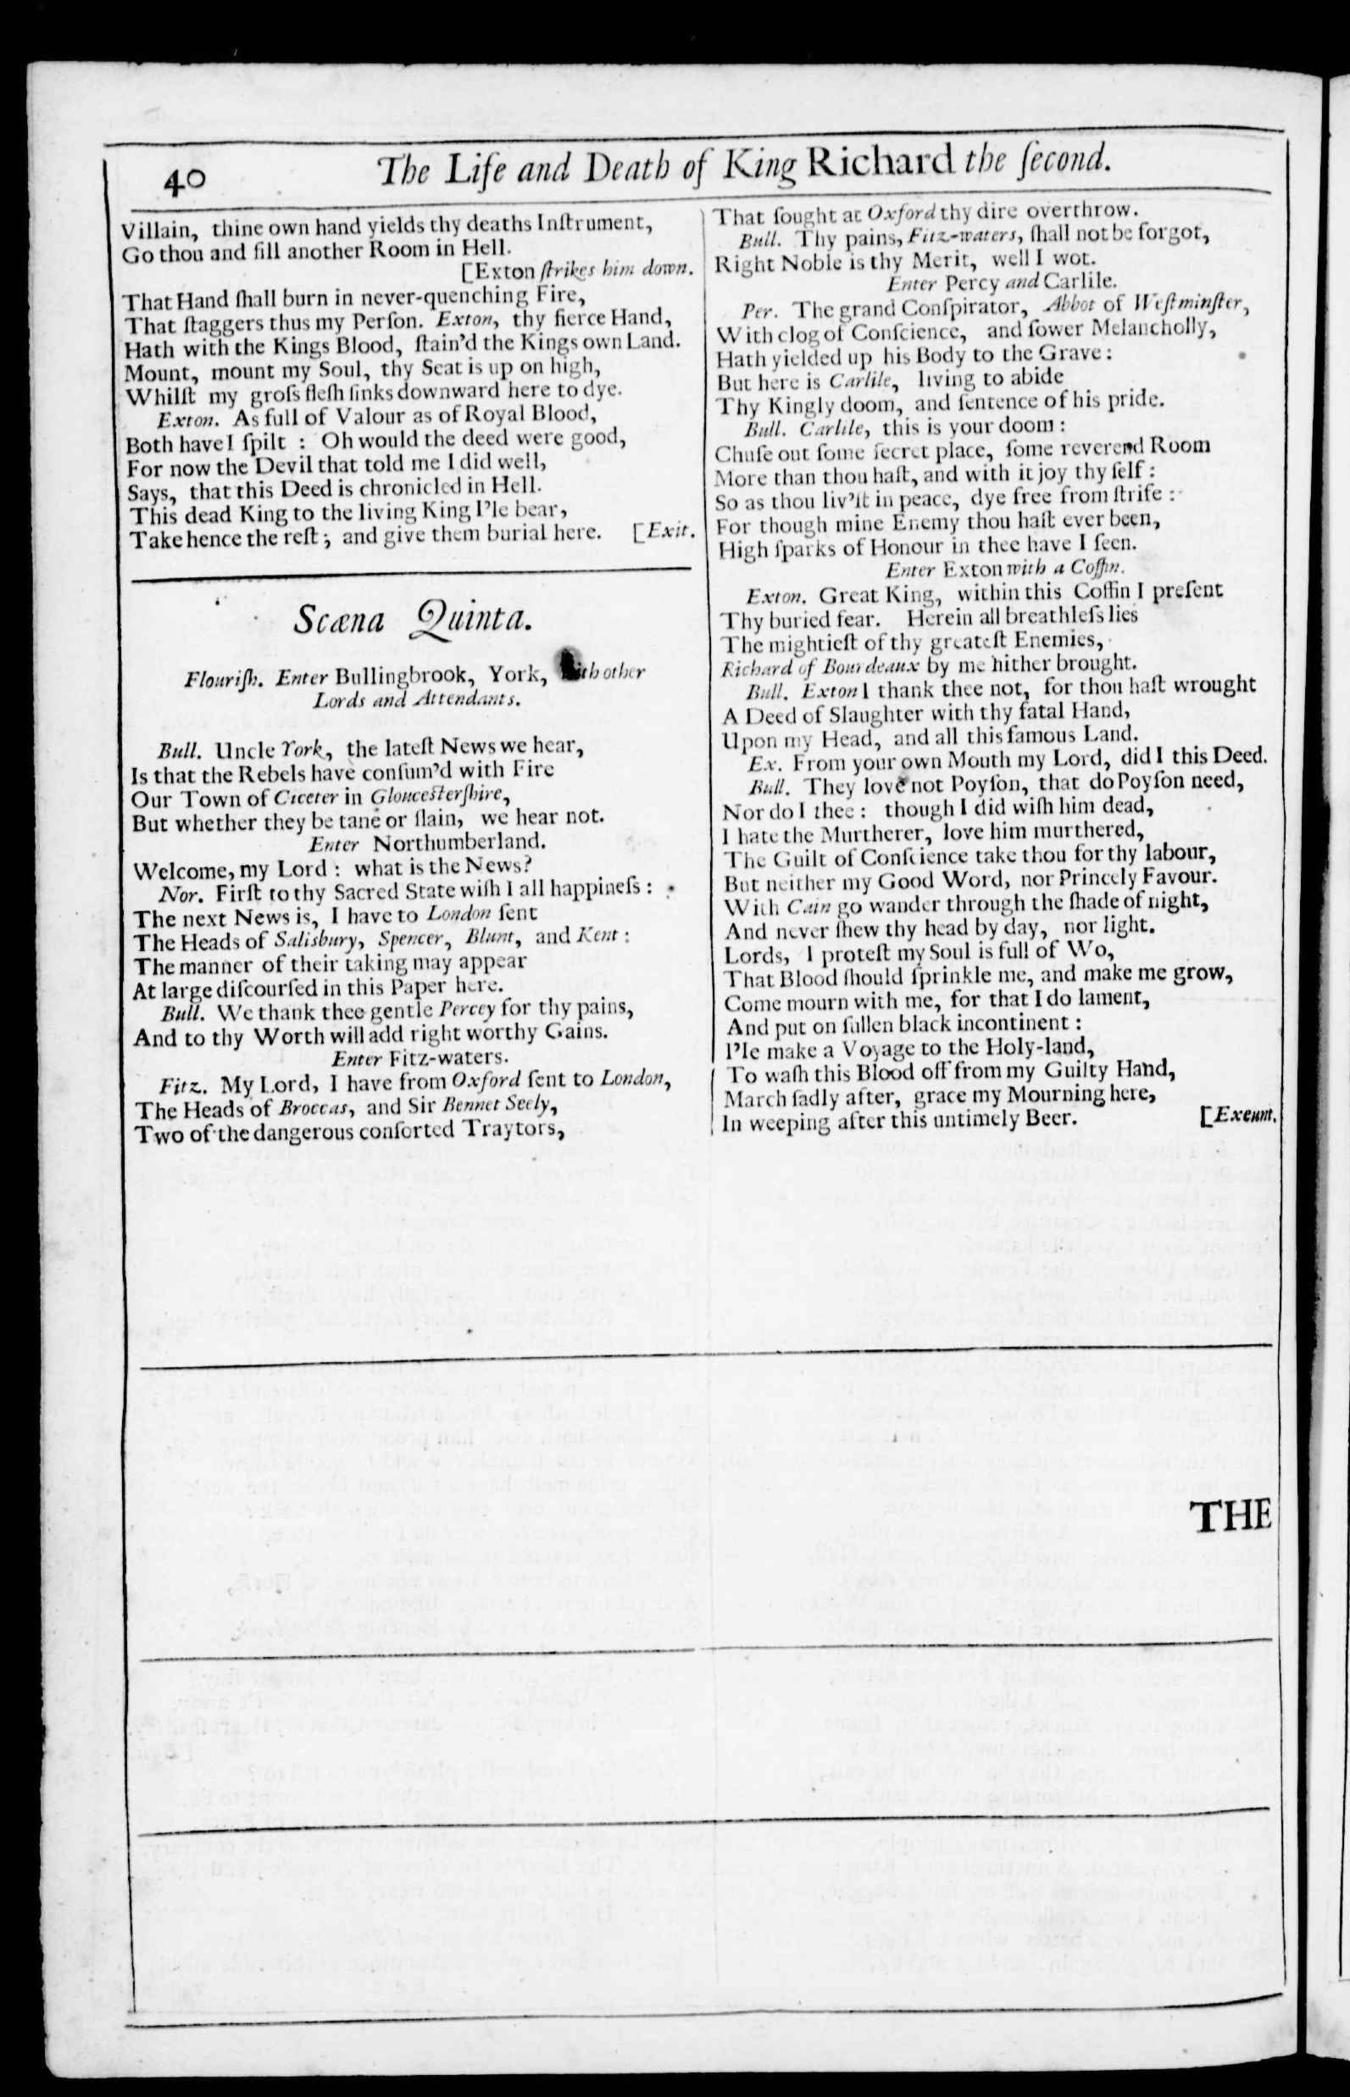 40
The Life and Death of King Richard the ſecond.
Villain, thine own hand yields thy deaths Inſtrument,
Go thou and fill another Room in Hell.
[Exton ſtrikes him down.
That Hand ſhall burn in never-quenching Fire,
That ſtaggers thus my Perſon. Exton, thy fierce Hand,
Hath with the Kings Blood, ſtain'd the Kings own Land.
Mount, mount my Soul, thy Seat is up on high,
Whilſt my groſs fleſh ſinks downward here to dye.
Exton. As full of Valour as of Royal Blood,
Both have I ſpilt : Oh would the deed were good,
For now the Devil that told me I did well,
Says, that this Deed is chronicled in Hell.
This dead King to the living King I'le bear,
Take hence the reſt ; and give them burial here. [Exit.
Scæna Quinta.
Flouriſh. Enter Bullingbrook, York, with other
Lords and Attendants.
Bull. Uncle York, the lateſt News we hear,
Is that the Rebels have conſum'd with Fire
Our Town of Ciceter in Glouceſterſhire,
But whether they be tane or ſlain, we hear not.
Enter Northumberland.
Welcome, my Lord : what is the News?
Nor. Firſt to thy Sacred State wiſh I all happineſs :
The next News is, I have to London ſent
The Heads of Salisbury, Spencer, Blunt, and Kent :
The manner of their taking may appear
At large diſcourſed in this Paper here.
Bull. We thank thee gentle Percey for thy pains,
And to thy Worth will add right worthy Gains.
Enter Fitz-waters.
Fitz. My Lord, I have from Oxford ſent to London,
The Heads of Broccas, and Sir Bennet Seely,
Two of the dangerous conſorted Traytors,
That ſought at Oxford thy dire overthrow.
Bull. Thy pains, Fitz-waters, ſhall not be forgot,
Right Noble is thy Merit, well I wot.
Enter Percy and Carlile.
Per. The grand Conſpirator, Abbot of Weſtminſter,
With clog of Conſcience, and ſower Melancholly,
Hath yielded up his Body to the Grave :
But here is Carlile, living to abide
Thy Kingly doom, and ſentence of his pride.
Bull. Carlile, this is your doom :
Chuſe out ſome ſecret place, ſome reverend Room
More than thou haſt, and with it joy thy ſelf :
So as thou liv'ſt in peace, dye free from ſtrife :
For though mine Enemy thou haſt ever been,
High ſparks of Honour in thee have I ſeen.
Enter Exton with a Coffin.
Exton. Great King, within this Coffin I preſent
Thy buried fear. Herein all breathleſs lies
The mightieſt of thy greateſt Enemies,
Richard of Bourdeaux by me hither brought.
Bull. Exton I thank thee not, for thou haſt wrought
A Deed of Slaughter with thy fatal Hand,
Upon my Head, and all this famous Land.
Ex. From your own Mouth my Lord, did I this Deed.
Bull. They love not Poyſon, that do Poyſon need,
Nor do I thee : though I did wiſh him dead,
I hate the Murtherer, love him murthered,
The Guilt of Conſcience take thou for thy labour,
But neither my Good Word, nor Princely Favour.
With Cain go wander through the ſhade of night,
And never ſhew thy head by day, nor light.
Lords, I proteſt my Soul is full of Wo,
That Blood ſhould ſprinkle me, and make me grow,
Come mourn with me, for that I do lament,
And put on ſullen black incontinent :
I'le make a Voyage to the Holy-land,
To waſh this Blood off from my Guilty Hand,
March ſadly after, grace my Mourning here,
In weeping after this untimely Beer. [Exeunt.
THE